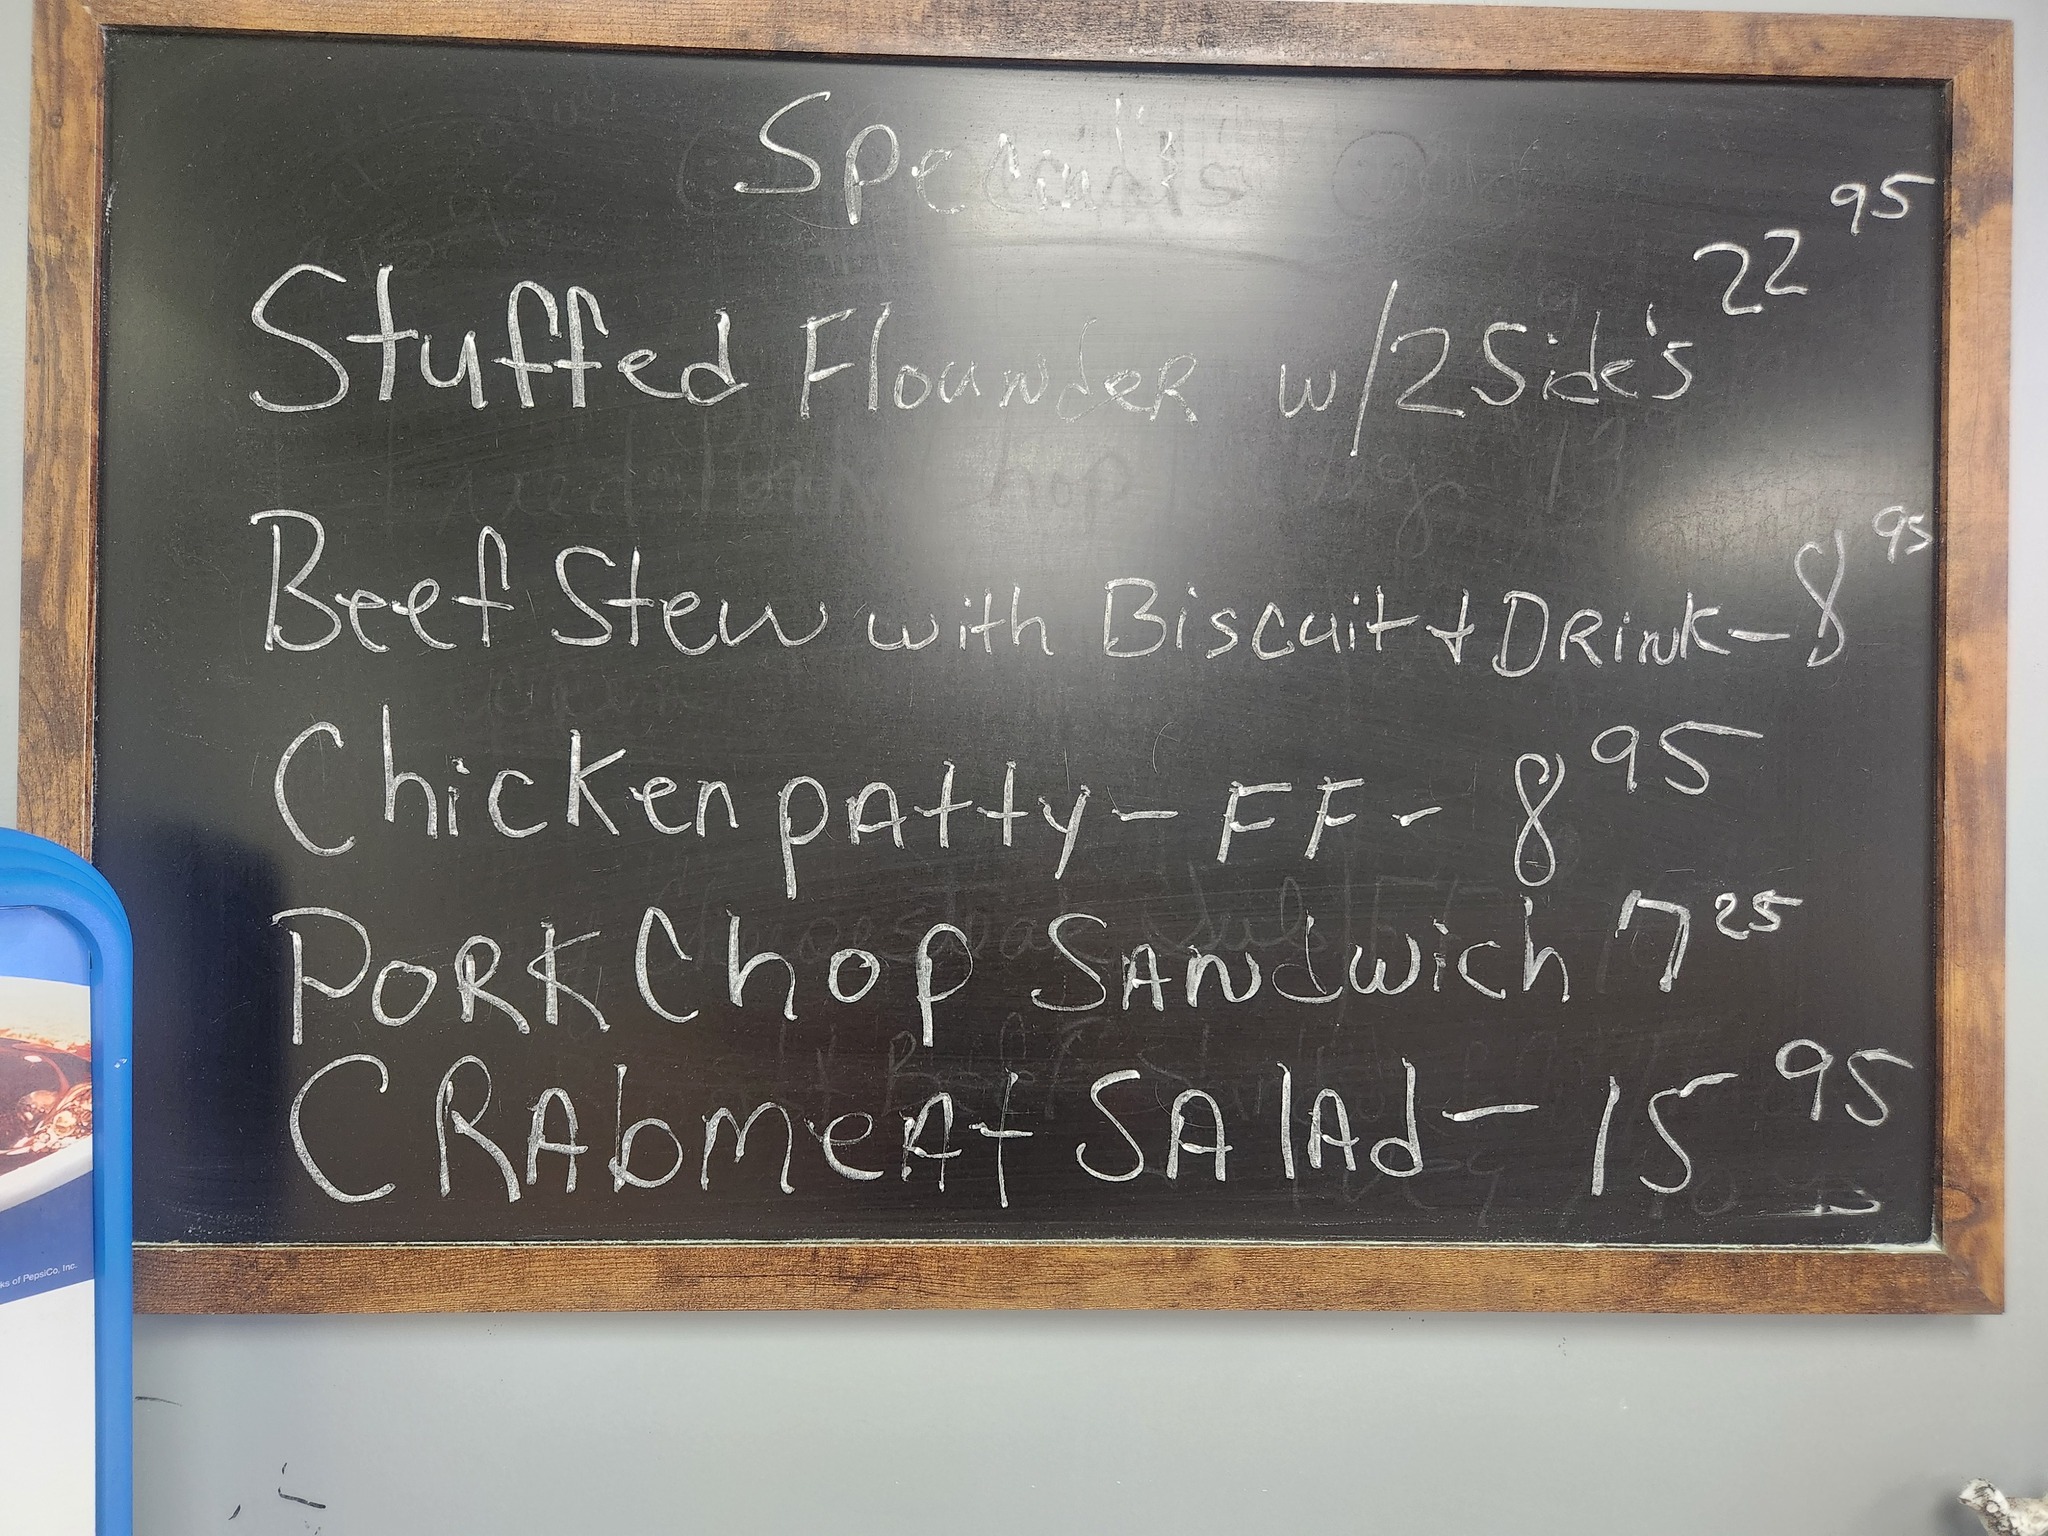 Special's
Stuffed Flounder w/2 Side's 22 95
Beef Stew with Biscuit + DRINK - 8 95
Chicken pAtty - FF - 8 95
PORK Chop SANdwich 7 25
CRAbmeAt SAlAd - 15 95
ks of PepsiCo, Inc.